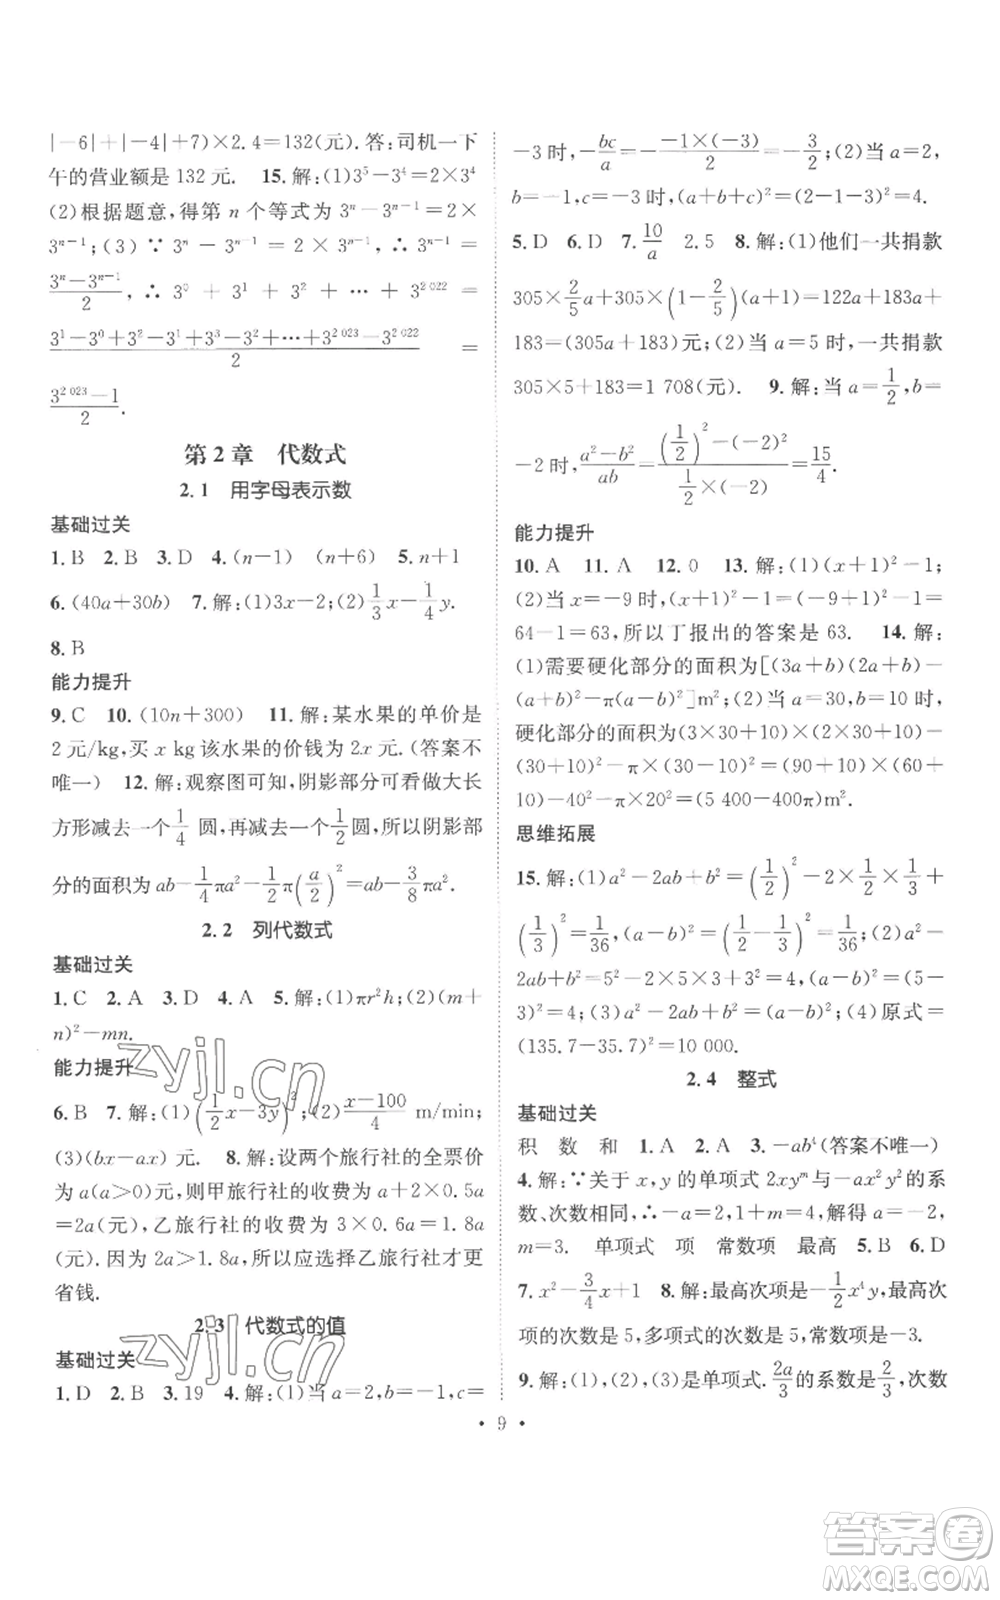 |－6|＋|－4|＋7)×2.4＝132(元).答:司机一下
午的营业额是 132 元. 15.解:(1)3^5－3^4＝2×3^4
(2)根据题意,得第 n 个等式为 3^n－3^{n－1}＝2×
3^{n－1};(3)∵3^n－3^{n－1}＝2×3^{n－1},∴3^{n－1}＝
\frac{3^n－3^{n－1}}{2},∴3^0＋3^1＋3^2＋…＋3^{2 022}＝
\frac{3^1－3^0＋3^2－3^1＋3^3－3^2＋…＋3^{2 023}－3^{2 022}}{2}＝
\frac{3^{2 023}－1}{2}.
第 2 章 代数式
2.1 用字母表示数
基础过关
1.B 2.B 3.D 4.(n－1) (n＋6) 5.n＋1
6.(40a＋30b) 7.解:(1)3x－2;(2)\frac{1}{3}x－\frac{1}{4}y.
8.B
能力提升
9.C 10.(10n＋300) 11.解:某水果的单价是
2 元/kg,买 x kg 该水果的价钱为 2x 元.(答案不
唯一) 12.解:观察图可知,阴影部分可看做大长
方形减去一个\frac{1}{4}圆,再减去一个\frac{1}{2}圆,所以阴影部
分的面积为 ab－\frac{1}{4}πa^2－\frac{1}{2}π(\frac{a}{2})^2＝ab－\frac{3}{8}πa^2.
2.2 列代数式
基础过关
1.C 2.A 3.D 4.A 5.解:(1)πr^2h;(2)(m＋
n)^2－mn.
能力提升
6.B 7.解:(1)(\frac{1}{2}x－3y)^2;(2)\frac{x－100}{4} m/min;
(3)(bx－ax)元. 8.解:设两个旅行社的全票价
为 a(a＞0)元,则甲旅行社的收费为 a＋2×0.5a
＝2a(元),乙旅行社的收费为 3×0.6a＝1.8a
(元).因为 2a＞1.8a,所以应选择乙旅行社才更
省钱.
2.3 代数式的值
基础过关
1.D 2.B 3.19 4.解:(1)当 a＝2,b＝－1,c＝
－3 时,\frac{bc}{a}＝\frac{－1×(－3)}{2}＝\frac{3}{2};(2)当 a＝2,
b＝－1,c＝－3 时,(a＋b＋c)^2＝(2－1－3)^2＝4.
5.D 6.D 7.\frac{10}{a} 2.5 8.解:(1)他们一共捐款
305×\frac{2}{5}a＋305×(1－\frac{2}{5})(a＋1)＝122a＋183a＋
183＝(305a＋183)元;(2)当 a＝5 时,一共捐款
305×5＋183＝1 708(元). 9.解:当 a＝\frac{1}{2},b＝
－2 时,\frac{a^2－b^2}{ab}＝\frac{(\frac{1}{2})^2－(－2)^2}{\frac{1}{2}×(－2)}＝\frac{15}{4}.
能力提升
10.A 11.A 12.0 13.解:(1)(x＋1)^2－1;
(2)当 x＝－9 时,(x＋1)^2－1＝(－9＋1)^2－1＝
64－1＝63,所以丁报出的答案是 63. 14.解:
(1)需要硬化部分的面积为[(3a＋b)(2a＋b)－
(a＋b)^2－π(a－b)^2]m^2;(2)当 a＝30,b＝10 时,
硬化部分的面积为(3×30＋10)×(2×30＋10)－
(30＋10)^2－π×(30－10)^2＝(90＋10)×(60＋
10)－40^2－π×20^2＝(5 400－400π)m^2.
思维拓展
15.解:(1)a^2－2ab＋b^2＝(\frac{1}{2})^2－2×\frac{1}{2}×\frac{1}{3}＋
(\frac{1}{3})^2＝\frac{1}{36},(a－b)^2＝(\frac{1}{2}－\frac{1}{3})^2＝\frac{1}{36};(2)a^2－
2ab＋b^2＝5^2－2×5×3＋3^2＝4,(a－b)^2＝(5－
3)^2＝4;(3)a^2－2ab＋b^2＝(a－b)^2;(4)原式＝
(135.7－35.7)^2＝10 000.
2.4 整式
基础过关
积 数 和 1.A 2.A 3.－ab^4(答案不唯一)
4.解:∵关于 x,y 的单项式 2xy^m 与－ax^2y^2 的系
数、次数相同,∴－a＝2,1＋m＝4,解得 a＝－2,
m＝3. 单项式 项 常数项 最高 5.B 6.D
7.x^2－\frac{3}{4}x＋1 8.解:最高次项是－\frac{1}{2}x^4y,最高次
项的次数是 5,多项式的次数是 5,常数项是－3.
9.解:(1),(2),(3)是单项式.\frac{2a}{3}的系数是\frac{2}{3},次数
• 9 •
zyjl.cn
zyjl.cn
答案圈
MXQE.COM